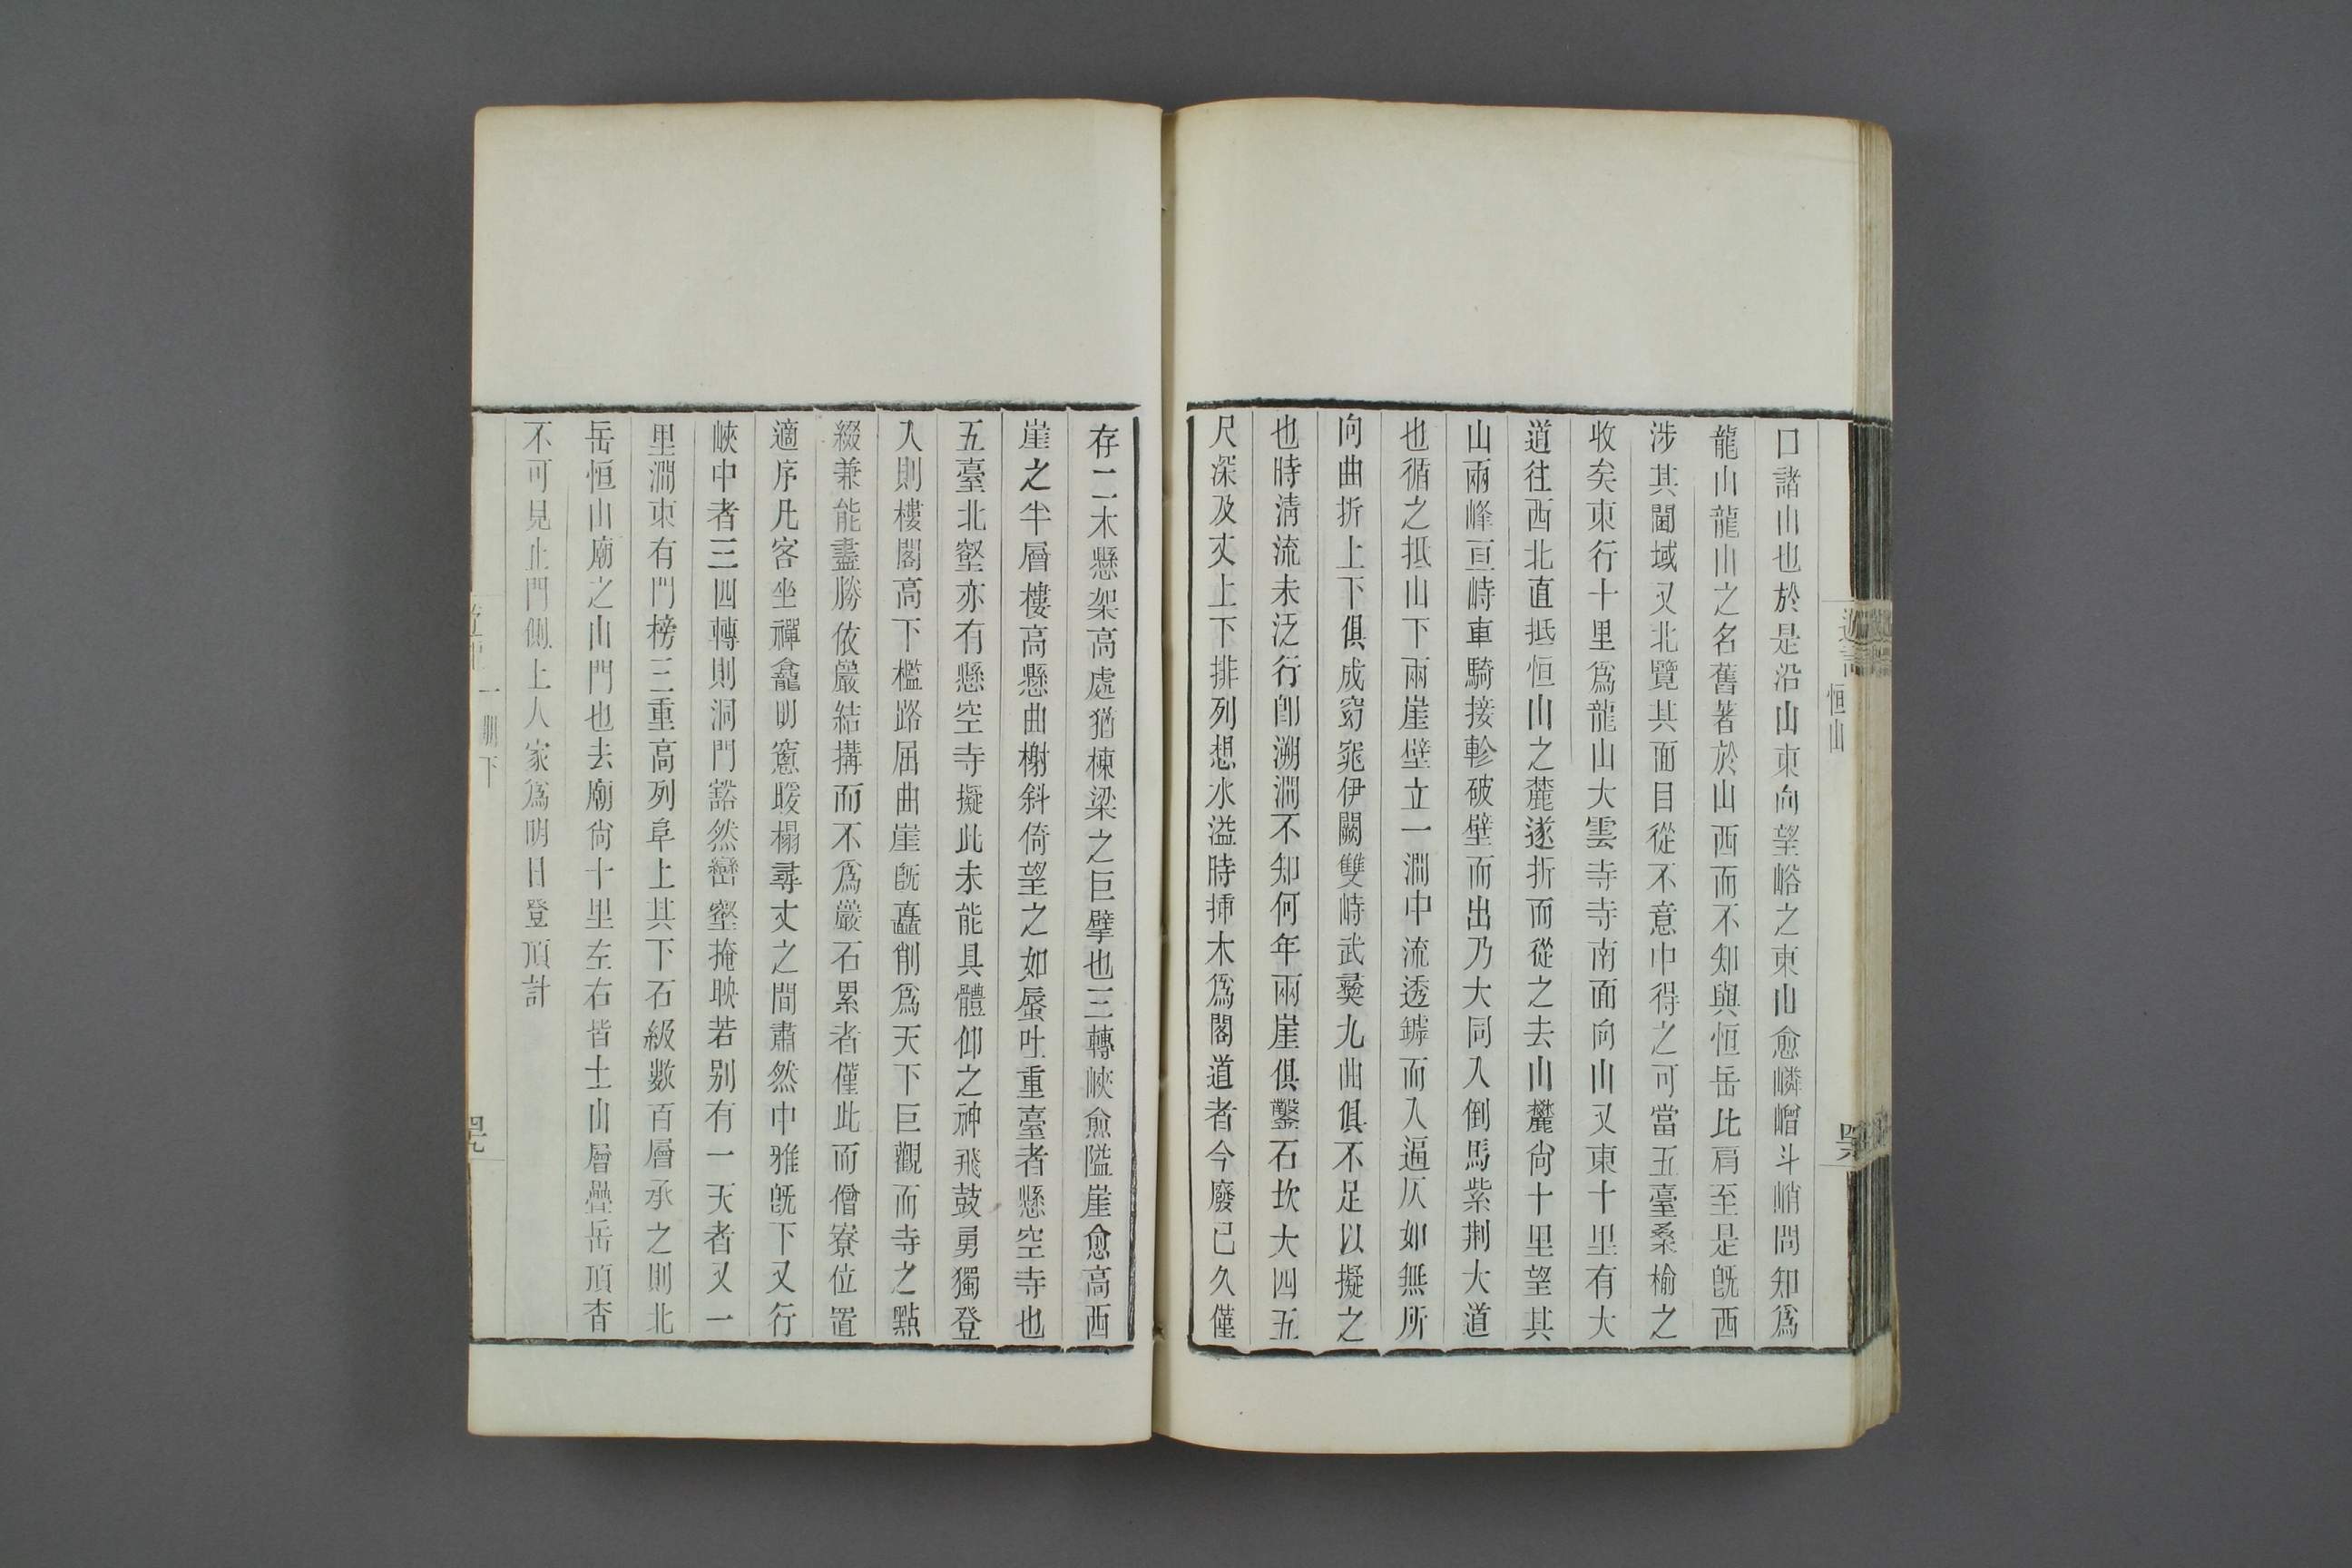 恒山
口諸山也於是沿山東向望峪之東山愈嶙嶒斗峭問知爲
龍山龍山之名舊著於山西而不知與恒岳比肩至是旣西
涉其閫域又北覽其面目從不意中得之可當五臺桑榆之
收矣東行十里爲龍山大雲寺寺南面向山又東十里有大
道往西北直抵恒山之麓遂折而從之去山麓尙十里望其
山兩峰亘峙車騎接軫破壁而出乃大同入倒馬紫荆大道
也循之抵山下兩崖壁立一澗中流透罅而入逼仄如無所
向曲折上下俱成窈窕伊闕雙峙武彝九曲俱不足以擬之
也時淸流未泛行卽溯澗不知何年兩崖俱鑿石坎大四五
尺深及丈上下排列想水溢時揷木爲閣道者今廢已久僅
存二木懸架高處猶棟梁之巨擘也三轉峽愈隘崖愈高西
崖之半層樓高懸曲榭斜倚望之如蜃吐重臺者懸空寺也
五臺北壑亦有懸空寺擬此未能具體仰之神飛鼓勇獨登
入則樓閣高下檻路屈曲崖旣矗削爲天下巨觀而寺之點
綴兼能盡勝依巖結搆而不爲巖石累者僅此而僧寮位置
適序凡客坐禪龕明窻暖榻尋丈之間肅然中雅旣下又行
峽中者三四轉則洞門豁然巒壑掩映若别有一天者又一
里澗東有門榜三重高列阜上其下石級數百層承之則北
岳恒山廟之山門也去廟尙十里左右皆土山層疊岳頂杳
不可見止門側土人家爲明日登頂計
一册下